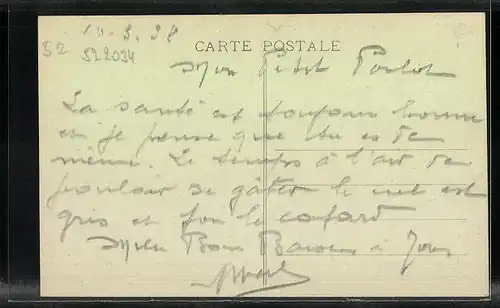 10.3.38
52
522034
CARTE POSTALE
Mon Petit Poulot
La santé est toujours bonne
et je pense que tu es de
même. Le temps à l'air de
vouloir se gâter le ciel est
gris et fou le cafard
Mille Bons Baisers à Tous